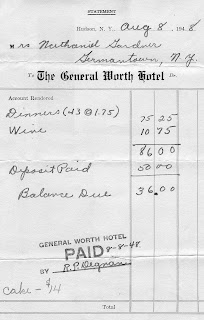 STATEMENT
Hudson, N. Y., Aug 8, 1948
Mrs Nathaniel Gardner
Germantown, N.Y.
To The General Worth Hotel Dr.
Amount Rendered
Dinners (43 @ 1.75) 75 25
Wine 10 75
86 00
Deposit Paid 50 00
Balance Due 36.00
GENERAL WORTH HOTEL
PAID 8-8-48
BY R.P. Degnan
Cake - $14
Total